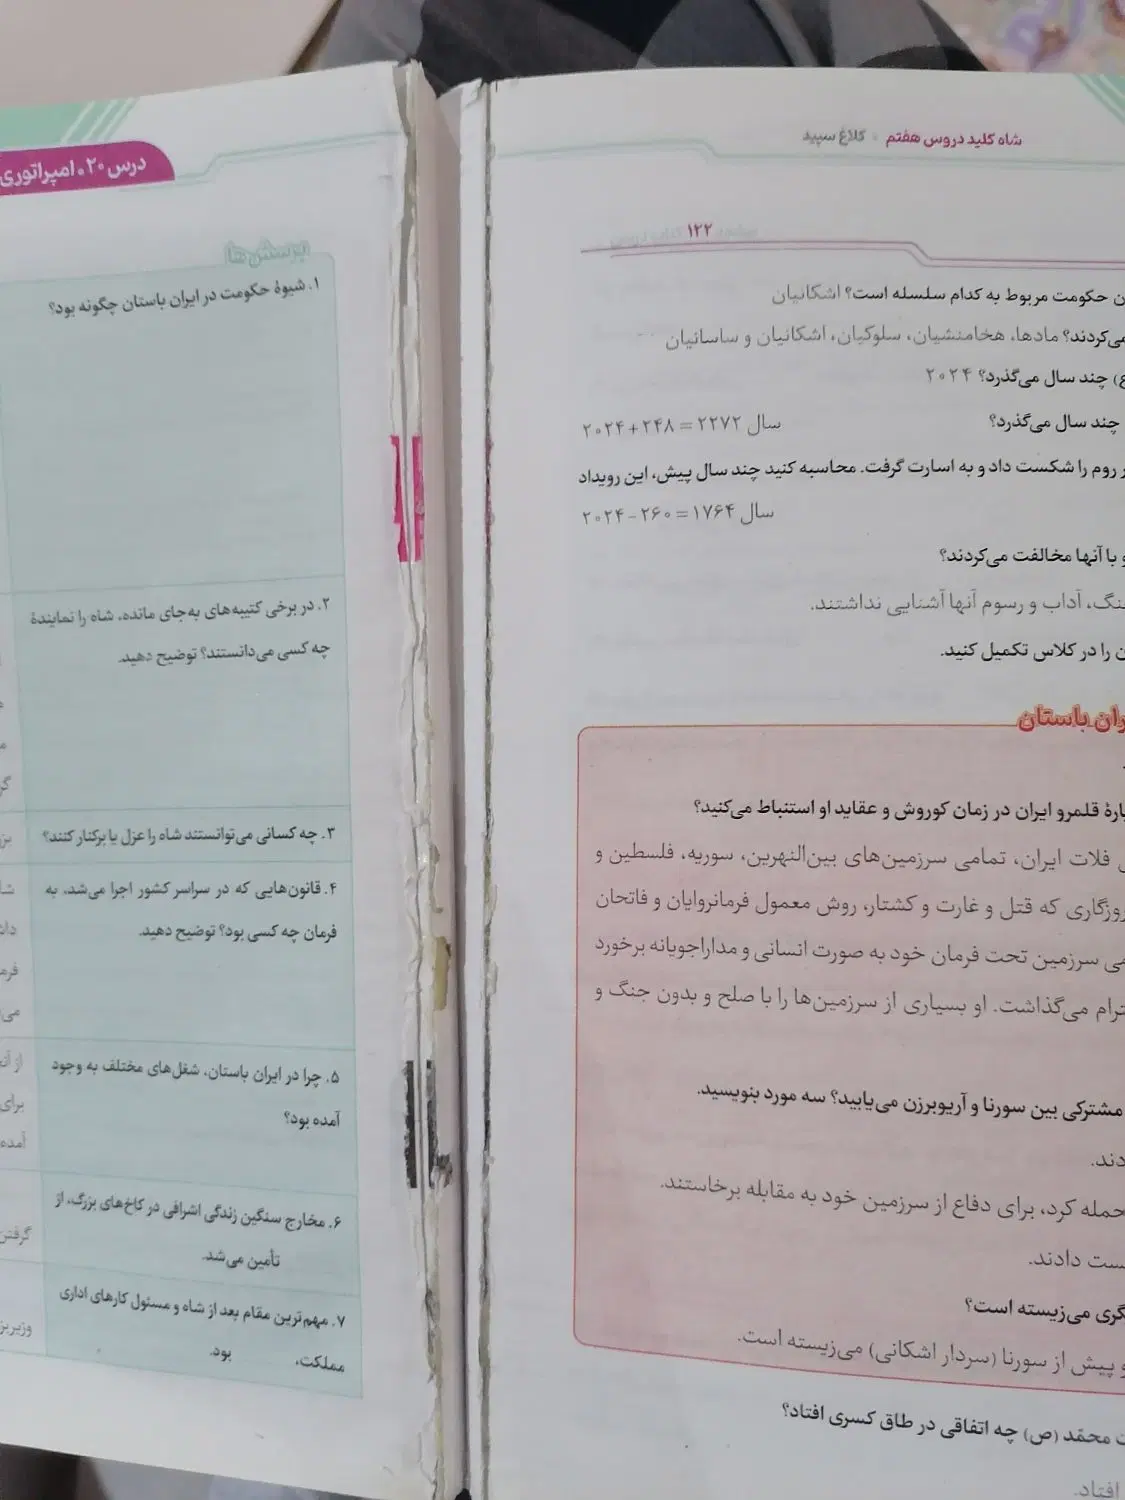 شاه کلید دروس هفتم • کلاغ سپید
۱۲۲
ن حکومت مربوط به کدام سلسله است؟ اشکانیان
می‌کردند؟ مادها، هخامنشیان، سلوکیان، اشکانیان و ساسانیان
ع) چند سال می‌گذرد؟ ۲۰۲۴
چند سال می‌گذرد؟ سال ۲۲۷۲ = ۲۴۸ + ۲۰۲۴
ر روم را شکست داد و به اسارت گرفت. محاسبه کنید چند سال پیش، این رویداد
سال ۱۷۶۴ = ۲۶۰ - ۲۰۲۴
و با آنها مخالفت می‌کردند؟
نگ، آداب و رسوم آنها آشنایی نداشتند.
ن را در کلاس تکمیل کنید.
ران باستان
بارهٔ قلمرو ایران در زمان کوروش و عقاید او استنباط می‌کنید؟
ل فلات ایران، تمامی سرزمین‌های بین‌النهرین، سوریه، فلسطین و
روزگاری که قتل و غارت و کشتار، روش معمول فرمانروایان و فاتحان
می سرزمین تحت فرمان خود به صورت انسانی و مداراجویانه برخورد
ترام می‌گذاشت. او بسیاری از سرزمین‌ها را با صلح و بدون جنگ و
مشترکی بین سورنا و آریوبرزن می‌یابید؟ سه مورد بنویسید.
دند.
حمله کرد، برای دفاع از سرزمین خود به مقابله برخاستند.
ست دادند.
گری می‌زیسته است؟
و پیش از سورنا (سردار اشکانی) می‌زیسته است.
ت محمّد (ص) چه اتفاقی در طاق کسری افتاد؟
افتاد.
درس ۲۰. امپراتوری
پرسش‌ها
۱. شیوهٔ حکومت در ایران باستان چگونه بود؟
۲. در برخی کتیبه‌های به‌جای مانده، شاه را نمایندهٔ
چه کسی می‌دانستند؟ توضیح دهید.
۳. چه کسانی می‌توانستند شاه را عزل یا برکنار کنند؟
۴. قانون‌هایی که در سراسر کشور اجرا می‌شد، به
فرمان چه کسی بود؟ توضیح دهید.
۵. چرا در ایران باستان، شغل‌های مختلف به وجود
آمده بود؟
۶. مخارج سنگین زندگی اشرافی در کاخ‌های بزرگ، از
تأمین می‌شد.
۷. مهم‌ترین مقام بعد از شاه و مسئول کارهای اداری
مملکت، بود.
گر
بزر
شا
داش
فرم
می‌
از آنج
برای
آمده
گرفتن
وزیر بز